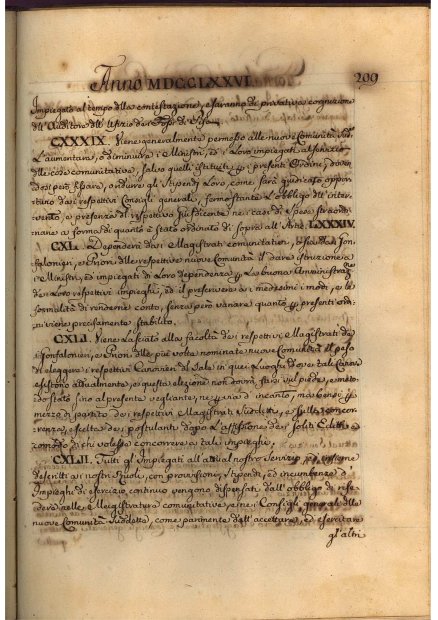 Anno MDCCLXXVI 209
Impiegato al tempo della contestazione, e saranno di privativa cognizione
dell'Auditore dell'Ufizio dei Fossi di Pisa.
CXXXIX. Viene generalmente permesso alle nuove Comunità
l'aumentare, o diminuire i Ministri, ed i loro impiegati in servizio
delle cose comunitative, salvo quelli istituiti i presenti Ordini, doven
dosi però fissare, o ridurre gli Stipendj loro, come sarà giudicato oppor
tuno dai respettivi Consigli generali, ferma stante l'obbligo dell'inter
vento, e presenza del respettivo Jusdicente nei casi di Spese straordi
narie a forma di quanto è stato ordinato di sopra all'Artic. LXXXIV.
CXL. Dependerà dai Magistrati comunitativi, o sia dai Gon
falonieri, e Priori delle respettive nuove Comunità il dare istruzione a
i Ministri, ed impiegati di loro dependenza la buona Amministrazione
dei loro respettivi impieghi, ed il prescrivere ai medesimi i modi, e le
formalità di renderne conto, senza però variare quanto i presenti ordi
ni viene precisamente stabilito.
CXLI. Viene lasciato alla facoltà dei respettivi Magistrati de
i Gonfalonieri, e Priori delle più volte nominate nuove Comunità il
eleggere i respettivi Canovieri di Sale in quei Luoghi dove tali Canove
esistono attualmente, e questa elezione non dovrà farsi sul piede, e meto
do stato fino al presente vegliante, per via d'incanto, ma bensì
mezzo di partito dei respettivi Magistrati Suddetti, e sulla concor
renza, e scelta dei postulanti dopo l'affissione dei soliti Editti
comodo di chi volesse concorrere a tali impieghi.
CXLII. Tutti gl'Impiegati all'attual nostro Servizio
descritti ai nostri Ruoli, con provvisioni, Stipendj, ed incumbenze d'
Impieghi di esercizio continuo vengono dispensati dall'obbligo di rise
dere nelle Magistrature comunitative, e nei Consigli generali delle
nuove Comunità Suddette come parimente dall'accettare, ed esercitare
gl'altri